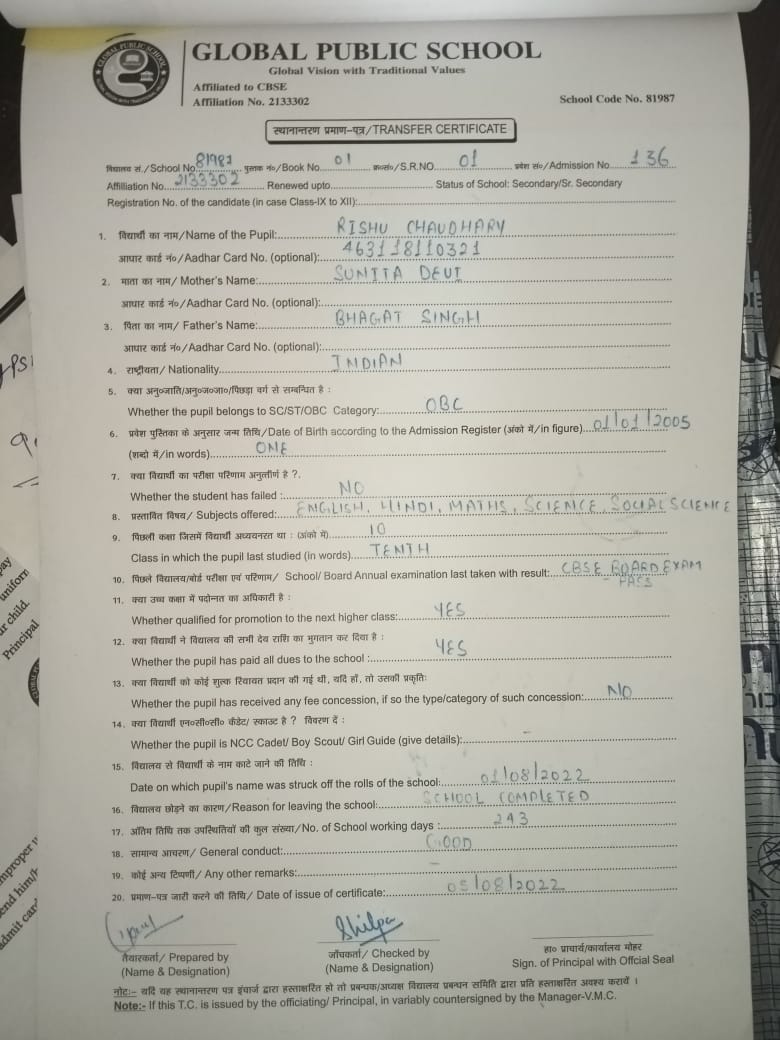 GLOBAL PUBLIC SCHOOL
GLOBAL PUBLIC SCHOOL
Global Vision with Traditional Values
Affiliated to CBSE
Affiliation No. 2133302
School Code No. 81987
स्थानान्तरण प्रमाण-पत्र/TRANSFER CERTIFICATE
विद्यालय सं./School No. 81987 पुस्तक नं०/Book No. 01 क्र०सं०/S.R.NO. 01 प्रवेश सं०/Admission No. 136
Affilliation No. 2133302 Renewed upto. Status of School: Secondary/Sr. Secondary
Registration No. of the candidate (in case Class-IX to XII):
1. विद्यार्थी का नाम/Name of the Pupil: RISHU CHAUDHARY
आधार कार्ड नं०/Aadhar Card No. (optional): 463118110321
2. माता का नाम/ Mother's Name: SUNITA DEVI
आधार कार्ड नं०/Aadhar Card No. (optional):
3. पिता का नाम/ Father's Name: BHAGAT SINGH
आधार कार्ड नं०/Aadhar Card No. (optional):
4. राष्ट्रीयता/ Nationality INDIAN
5. क्या अनु०जाति/अनु०ज०जा०/पिछड़ा वर्ग से सम्बन्धित है :
Whether the pupil belongs to SC/ST/OBC Category: OBC
6. प्रवेश पुस्तिका के अनुसार जन्म तिथि/Date of Birth according to the Admission Register (अंको में/in figure) 01/01/2005
(शब्दो में/in words) ONE
7. क्या विद्यार्थी का परीक्षा परिणाम अनुत्तीर्ण है ?.
Whether the student has failed : NO
8. प्रस्तावित विषय/ Subjects offered: ENGLISH, HINDI, MATHS, SCIENCE, SOCIAL SCIENCE
9. पिछली कक्षा जिसमें विद्यार्थी अध्ययनरत था : (अंको में) 10
Class in which the pupil last studied (in words) TENTH
10. पिछले विद्यालय/बोर्ड परीक्षा एवं परिणाम/ School/ Board Annual examination last taken with result: CBSE BOARD EXAM
- PASS
11. क्या उच्च कक्षा में पदोन्नत का अधिकारी है :
Whether qualified for promotion to the next higher class: YES
12. क्या विद्यार्थी ने विद्यालय की सभी देय राशि का भुगतान कर दिया है :
Whether the pupil has paid all dues to the school : YES
13. क्या विद्यार्थी को कोई शुल्क रियायत प्रदान की गई थी, यदि हाँ, तो उसकी प्रकृति:
Whether the pupil has received any fee concession, if so the type/category of such concession: NO
14. क्या विद्यार्थी एन०सी०सी० कैडेट/ स्काउट है ? विवरण दें :
Whether the pupil is NCC Cadet/ Boy Scout/ Girl Guide (give details): -
15. विद्यालय से विद्यार्थी के नाम काटे जाने की तिथि :
Date on which pupil's name was struck off the rolls of the school: 01/08/2022
16. विद्यालय छोड़ने का कारण/Reason for leaving the school: SCHOOL COMPLETED
17. अंतिम तिथि तक उपस्थितियों की कुल संख्या/No. of School working days : 243
18. सामान्य आचरण/ General conduct: GOOD
19. कोई अन्य टिप्पणी/ Any other remarks: -
20. प्रमाण-पत्र जारी करने की तिथि/ Date of issue of certificate: 05/08/2022
Shilpa
तैयारकर्ता/ Prepared by
(Name & Designation)
जाँचकर्ता/ Checked by
(Name & Designation)
हा० प्राचार्य/कार्यालय मोहर
Sign. of Principal with Offcial Seal
नोट:- यदि यह स्थानान्तरण पत्र इंचार्ज द्वारा हस्ताक्षरित हो तो प्रबन्धक/अध्यक्ष विद्यालय प्रबन्धन समिति द्वारा प्रति हस्ताक्षरित अवश्य करायें ।
Note:- If this T.C. is issued by the officiating/ Principal, in variably countersigned by the Manager-V.M.C.
pay
uniform
ur child.
Principal